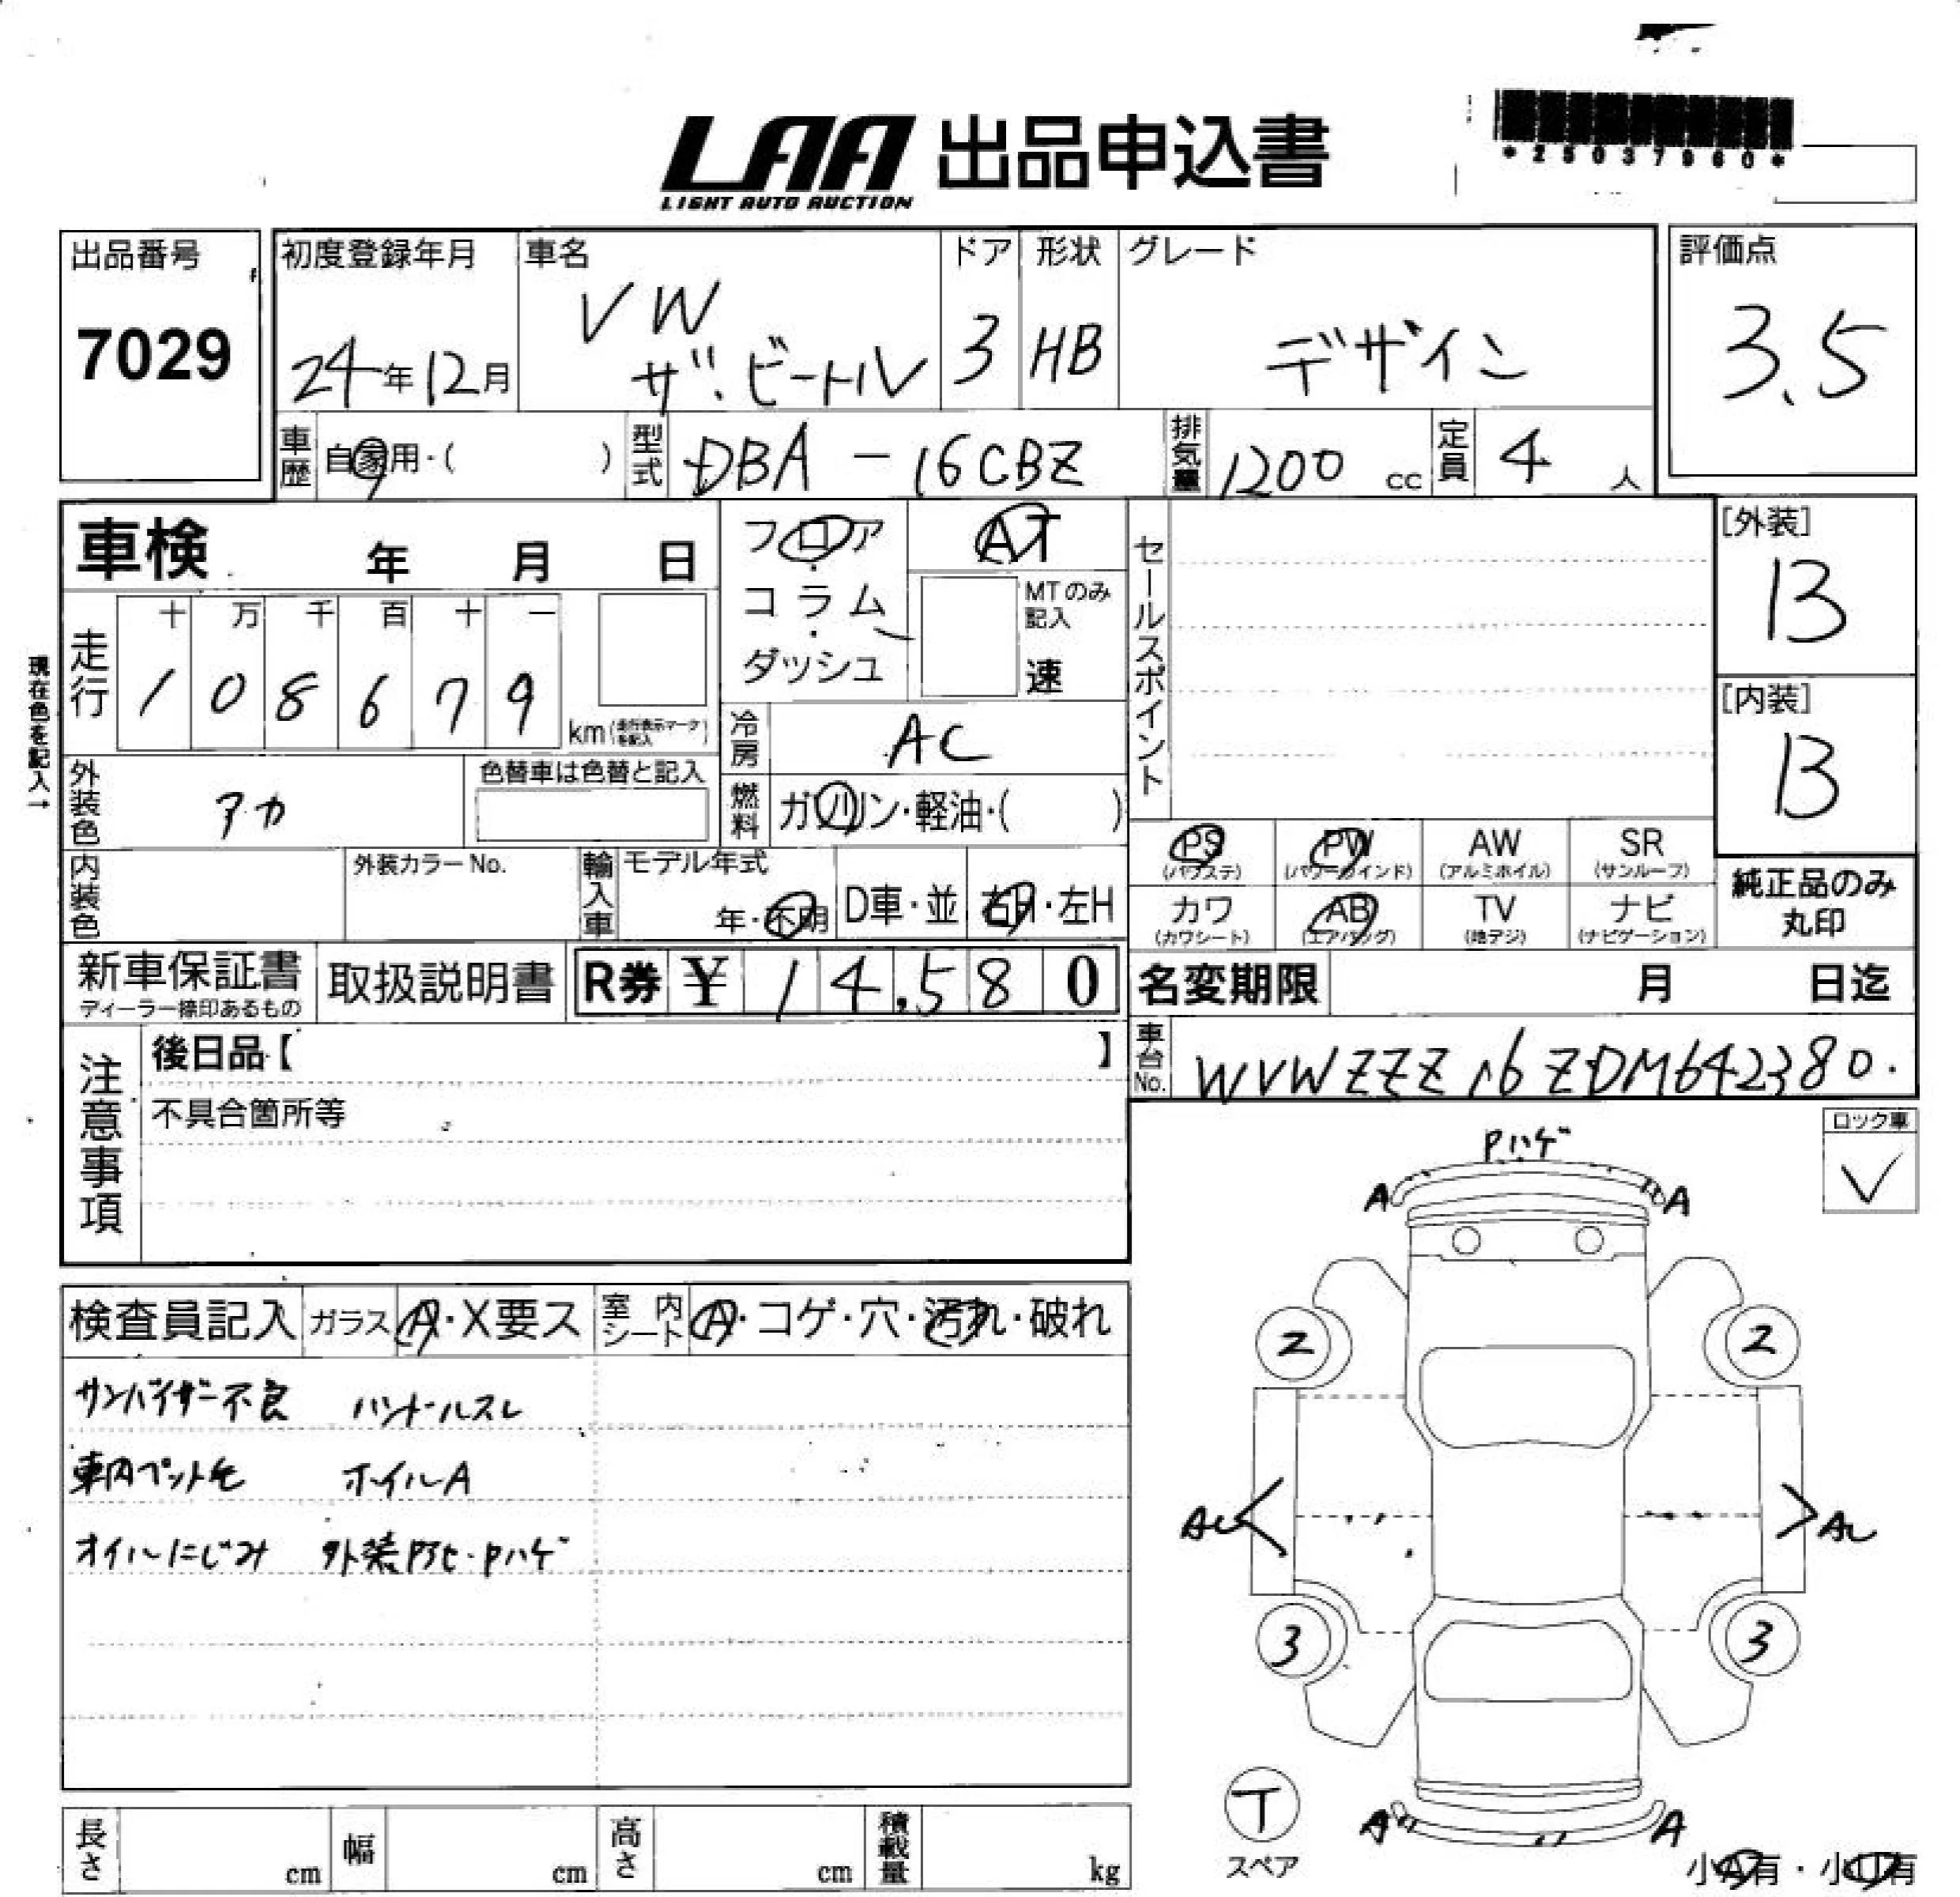 LAA 出品申込書
LIGHT AUTO AUCTION
*25037960*
出品番号
7029
初度登録年月
24年12月
車名
VW
ザ・ビートル
ドア
3
形状
HB
グレード
デザイン
評価点
3.5
車歴 自家用・( )
型式 DBA-16CBZ
排気量 1200 cc
定員 4 人
車検 年 月 日
フロア・コラム・ダッシュ
AT
MTのみ記入
速
セールスポイント
[外装]
B
[内装]
B
現在色を記入→
走行
十 万 千 百 十 一
1 0 8 6 7 9
km(走行表示マークを記入)
冷房 AC
外装色 アカ
色替車は色替と記入
燃料 ガソリン・軽油・( )
PS (パワステ)
PW (パワーウインド)
AW (アルミホイル)
SR (サンルーフ)
カワ (カワシート)
AB (エアバッグ)
TV (地デジ)
ナビ (ナビゲーション)
純正品のみ
丸印
内装色
外装カラーNo.
輸入車
モデル年式
年・不明
D車・並
右H・左H
新車保証書
ディーラー捺印あるもの
取扱説明書
R券 ¥ 14,580
名変期限 月 日迄
注意事項
後日品【 】
不具合箇所等
車台No. WVWZZZ16ZDM642380.
ロック車
✓
検査員記入
ガラス A・X要ス
室内シート A・コゲ・穴・汚れ・破れ
サンバイザー不良 ハンドルスレ
車内ペット毛 ホイルA
オイルにじみ 外装PSヒ・Pハゲ
Pハゲ
A A
2 2
3 3
A A
T
スペア
小A有・小U有
長さ cm
幅 cm
高さ cm
積載量 kg